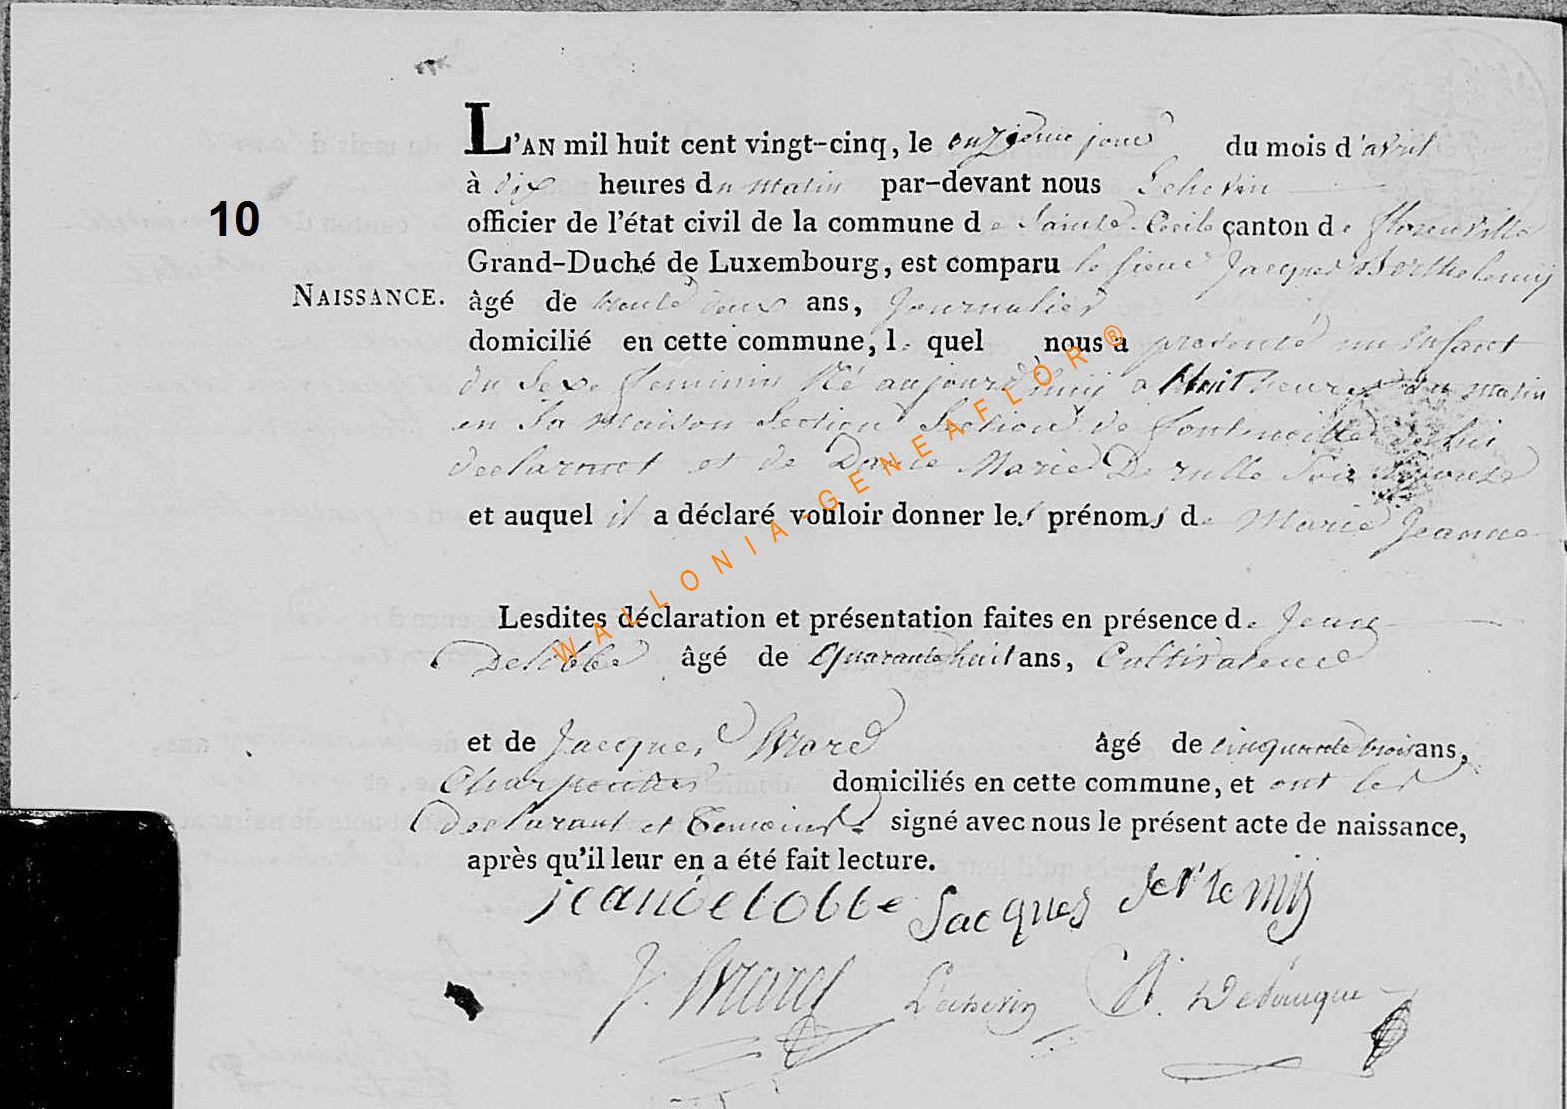 L'AN mil huit cent vingt-cinq, le onzieme jour du mois d'avril
à dix heures du matin par-devant nous
officier de l'état civil de la commune de Sainte Cecile canton de florenville
10
Grand-Duché de Luxembourg, est comparu le sieur Jacques Berthelemy
NAISSANCE.
âgé de trente deux ans, Journalier
domicilié en cette commune, le quel nous a presenté un Enfant
du Sexe feminin Né aujourd'huij a Huit heures du matin
en Sa Maison Section Section de fontenoille de lui
declarant et de Marie Son Epouse
et auquel il a déclaré vouloir donner les prénoms de Marie Jeanne
Lesdites déclaration et présentation faites en présence de Jean
Delobbe âgé de Quarante huit ans, Cultivateur
et de Jacques âgé de cinquante trois ans,
Charpentier domiciliés en cette commune, et ont les
declarant et Temoins signé avec nous le présent acte de naissance,
après qu'il leur en a été fait lecture.
jean delobbe Jacques
J.
WALLONIA-GENEAFLOR®